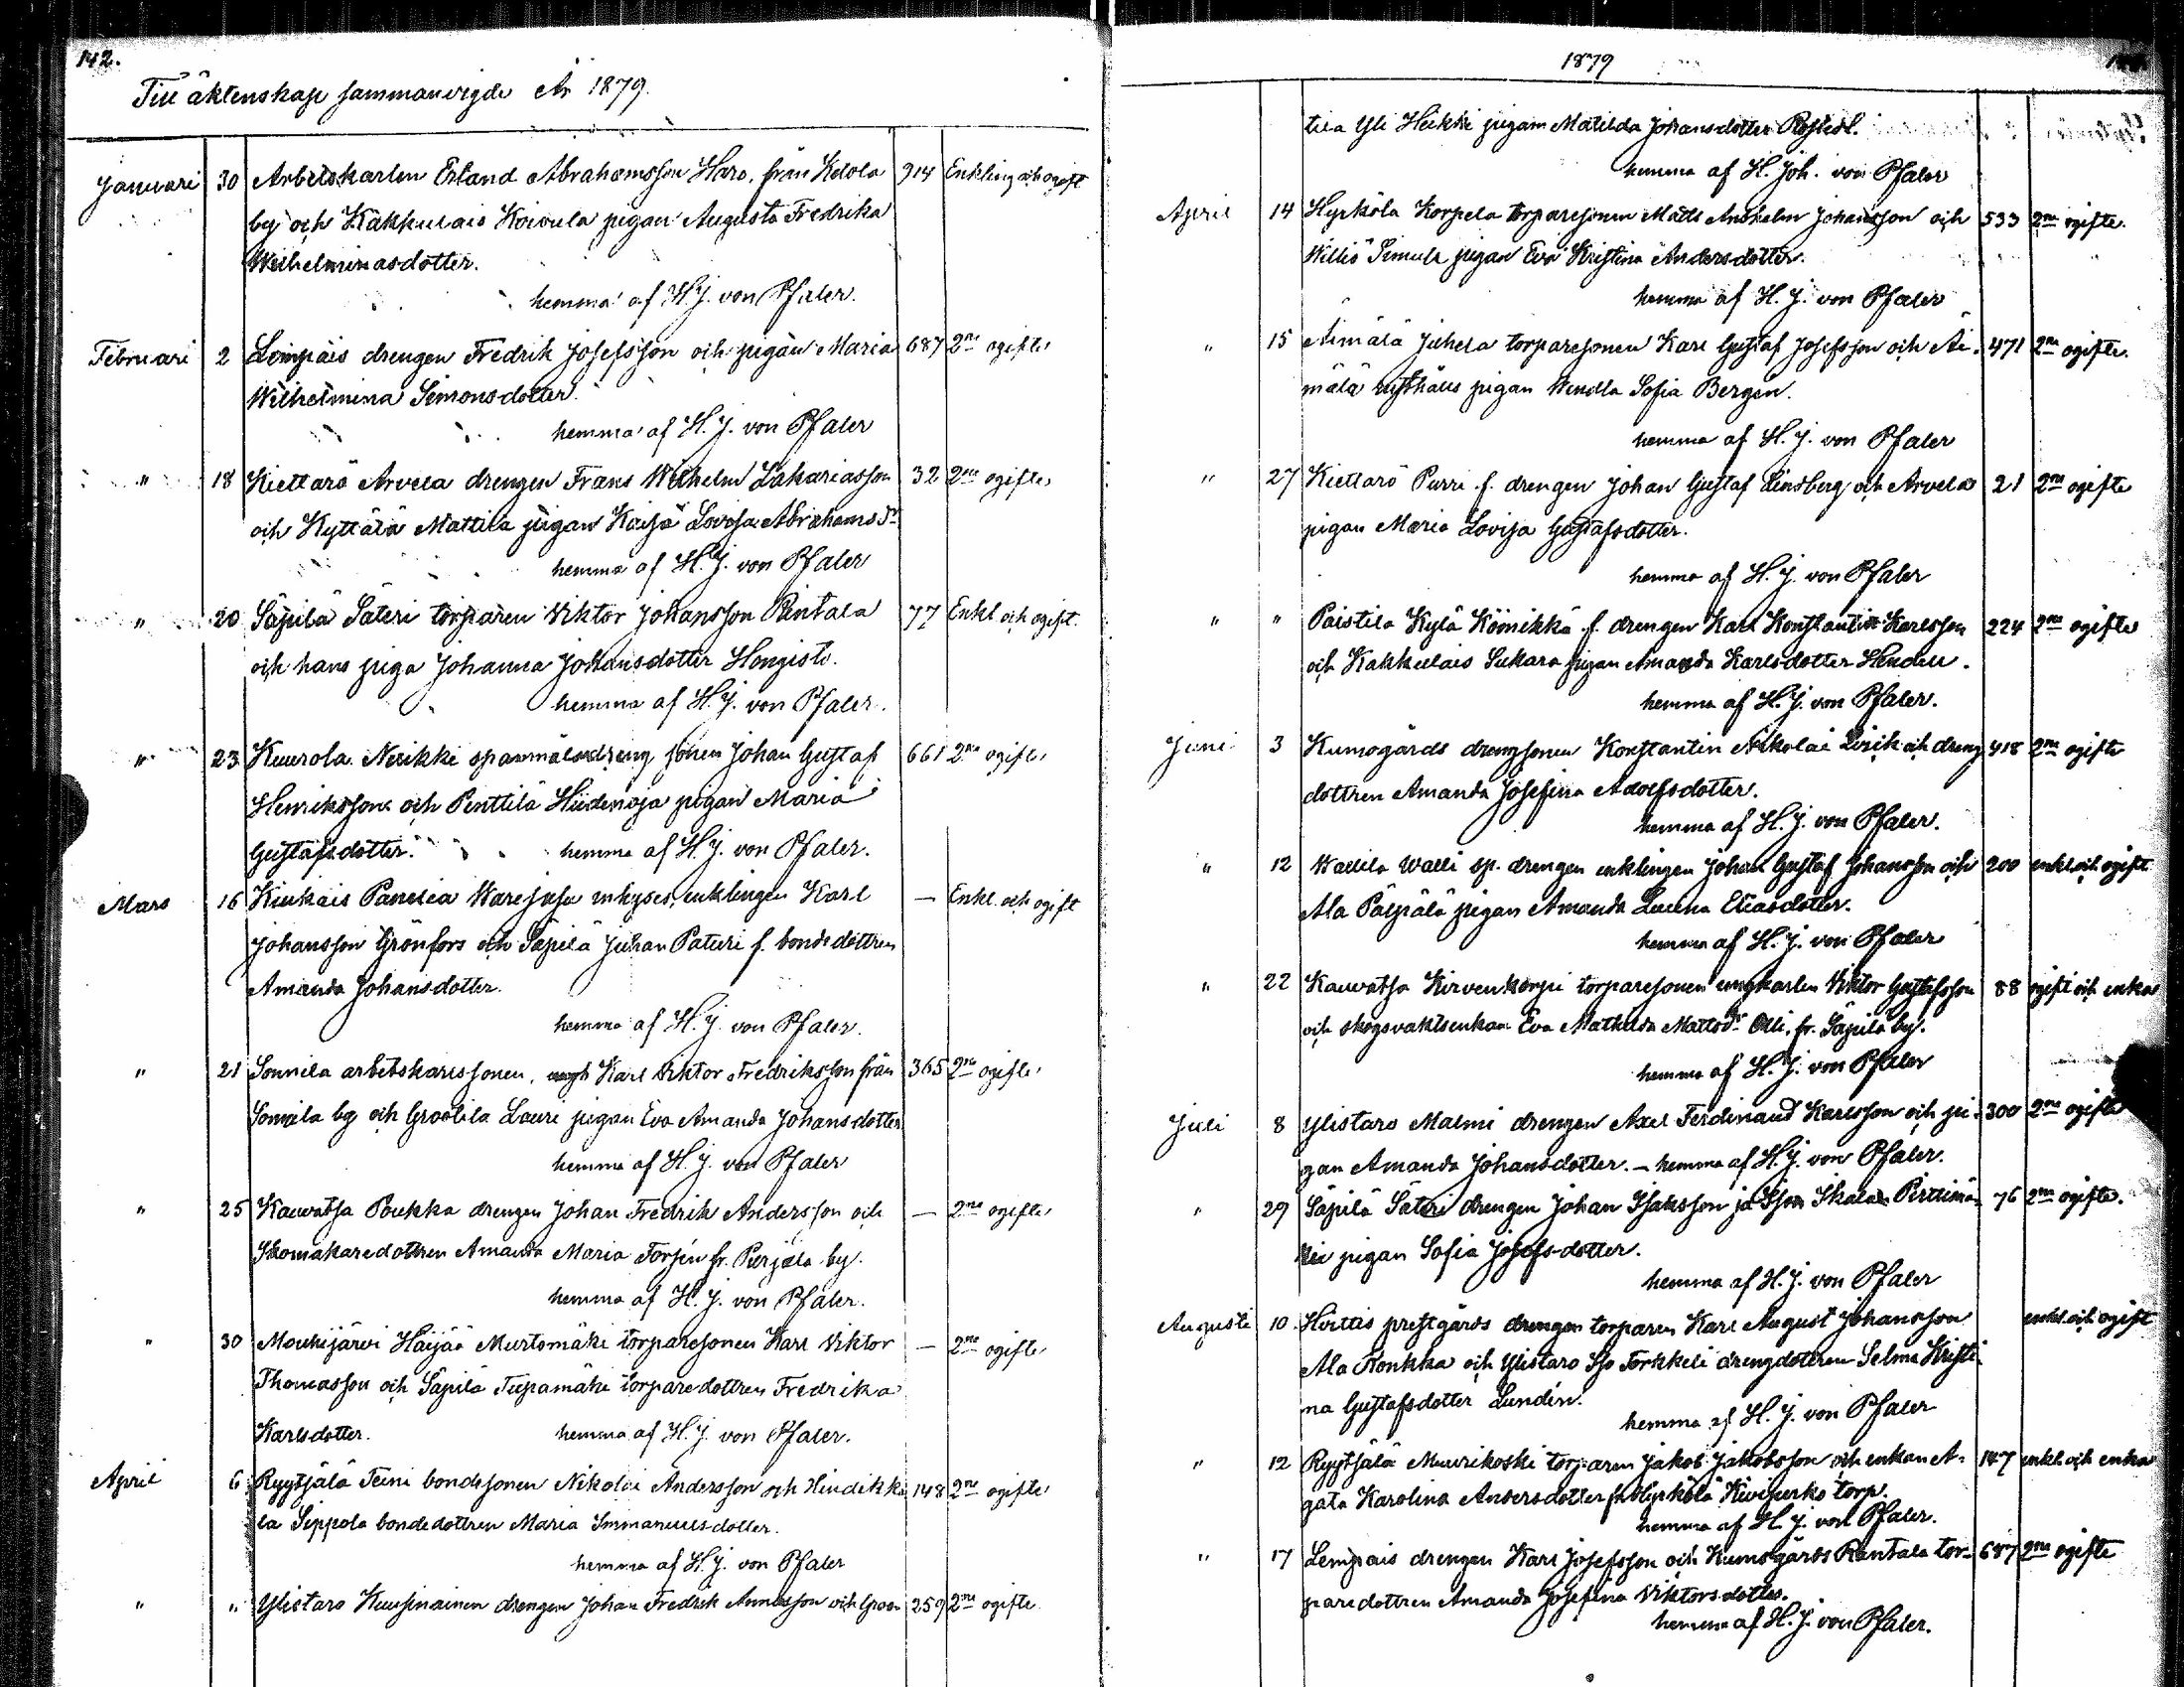 142.
Till äktenskap sammanvigde År 1879.
Januari 30 Arbetskarlen Erland Abrahamsson Haro, från Kdola 914 Enkling och ogift
by och Kakkulais Koivula pigan Augusta Fredrika
Wilhelminasdotter.
hemma af H. J. von Pfaler.
Februari 2 Lempais drengen Fredrik Josefsson och pigan Maria 687 2ne ogifte
Wilhelmina Simonsdotter.
hemma af H. J. von Pfaler
" 18 Kiettarö Arvela drengen Frans Wilhelm Sakariasson 32 2ne ogifte
och Kyttälä Mattila pigan Kaisa Lovisa Abrahamsdr
hemma af H. J. von Pfaler
" 20 Säpilä Säteri torparen Viktor Johansson Rintala 77 Enkl. och ogift.
och hans piga Johanna Johansdotter Hongisto.
hemma af H. J. von Pfaler.
" 23 Kuurola Nerikki spanmålsdreng sonen Johan Gustaf 661 2ne ogifte
Henriksson och Penttilä Hiidenoja pigan Maria
Gustafsdotter. hemma af H. J. von Pfaler.
Mars 16 Kiukais Panelia inhyses enklingen Karl — Enkl. och ogift
Johansson Grönfors och Säpilä Juhan Paturi f. bonde dottren
Amanda Johansdotter.
hemma af H. J. von Pfaler.
" 21 Sonnila arbetskarlssonen, Karl Viktor Fredriksson från 365 2ne ogifte
Sonnila by och Grootila Lauri pigan Eva Amanda Johansdotter
hemma af H. J. von Pfaler
" 25 Kauvatsa Poukka drengen Johan Fredrik Andersson och — 2ne ogifte
Skomakaredottren Amanda Maria Forsén fr. Purjala by.
hemma af H. J. von Pfaler.
" 30 Mouhijärvi Häijää Murtomäki torparesonen Karl Viktor — 2ne ogifte
Thomasson och Säpilä Tupamäki torparedottren Fredrika
Karlsdotter. hemma af H. J. von Pfaler.
April 6 Ryytsälä Teini bondesonen Nikolai Andersson och Hindikka 148 2ne ogifte
la Seppola bondedottren Maria Immanuelsdotter.
hemma af H. J. von Pfaler
" " Ylistaro Kuusinainen drengen Johan Fredrik Annasson och Groo 259 2ne ogifte
1879
tila Yli Heikki pigan Matilda Johansdotter
hemma af H. Joh. von Pfaler
April 14 Hyrkölä Korpela torparesonen Matts Anshelm Johansson och 533 2ne ogifte.
Williö Simula pigan Eva Kristina Andersdotter.
hemma af H. J. von Pfaler
" 15 Äimälä Juhela torparesonen Karl Gustaf Josefsson och Äi- 471 2ne ogifte.
mälä rusthålls pigan Wendla Sofia Bergén.
hemma af H. J. von Pfaler
" 27 Kiettarö Purri f. drengen Johan Gustaf Linsberg och Arvela 21 2ne ogifte
pigan Maria Lovisa Gustafsdotter.
hemma af H. J. von Pfaler
" " Paistila Kylä Köönikkä f. drengen Karl Konstantin Karlsson 224 2ne ogifte
och Kakkulais Sukara pigan Amanda Karlsdotter
hemma af H. J. von Pfaler.
Juni 3 Kumogårds drengsonen Konstantin Nikolai och dreng 418 2ne ogifte
dottren Amanda Josefina Adolfsdotter.
hemma af H. J. von Pfaler.
" 12 Wallila Walli sp. drengen enklingen Johan Gustaf Johansson och 200 enkl. och ogift
Ala Päipälä pigan Amanda Lucina Eliasdotter.
hemma af H. J. von Pfaler
" 22 Kauvatsa Kirvenkorpi torparesonen ungkarlen Viktor Gustafsson 88 ogift och enka
och skogsvaktsenkan Eva Mathilda Mattsdr Olli, fr. Säpilä by.
hemma af H. J. von Pfaler
Juli 8 Ylistaro Malmi drengen Axel Ferdinand Karlsson och pi- 300 2ne ogifte
gan Amanda Johansdotter. — hemma af H. J. von Pfaler.
" 29 Säpilä Säteri drengen Johan Isaksson ja Ison Skalan Pirttimä- 76 2ne ogifte.
ki pigan Sofia Josefsdotter.
hemma af H. J. von Pfaler
Augusti 10. Hvittis prestgårds drengen torparen Karl August Johansson enkl. och ogift
Ala Ronkka och Ylistaro Iso Torkkeli drengdottren Selma Kristi-
na Gustafsdotter Lundén.
hemma af H. J. von Pfaler
" 12 Ryytsälä Muurikoski torparen Jakob Jakobsson och enkan A- 147 enkl. och enka
gata Karolina Andersdotter fr. Hyrkölä Kiviperko torp.
hemma af H. J. von Pfaler.
" 17 Lempais drengen Karl Josefsson och Kumogårds Rantala tor- 687 2ne ogifte
paredottren Amanda Josefina Viktorsdotter.
hemma af H. J. von Pfaler.